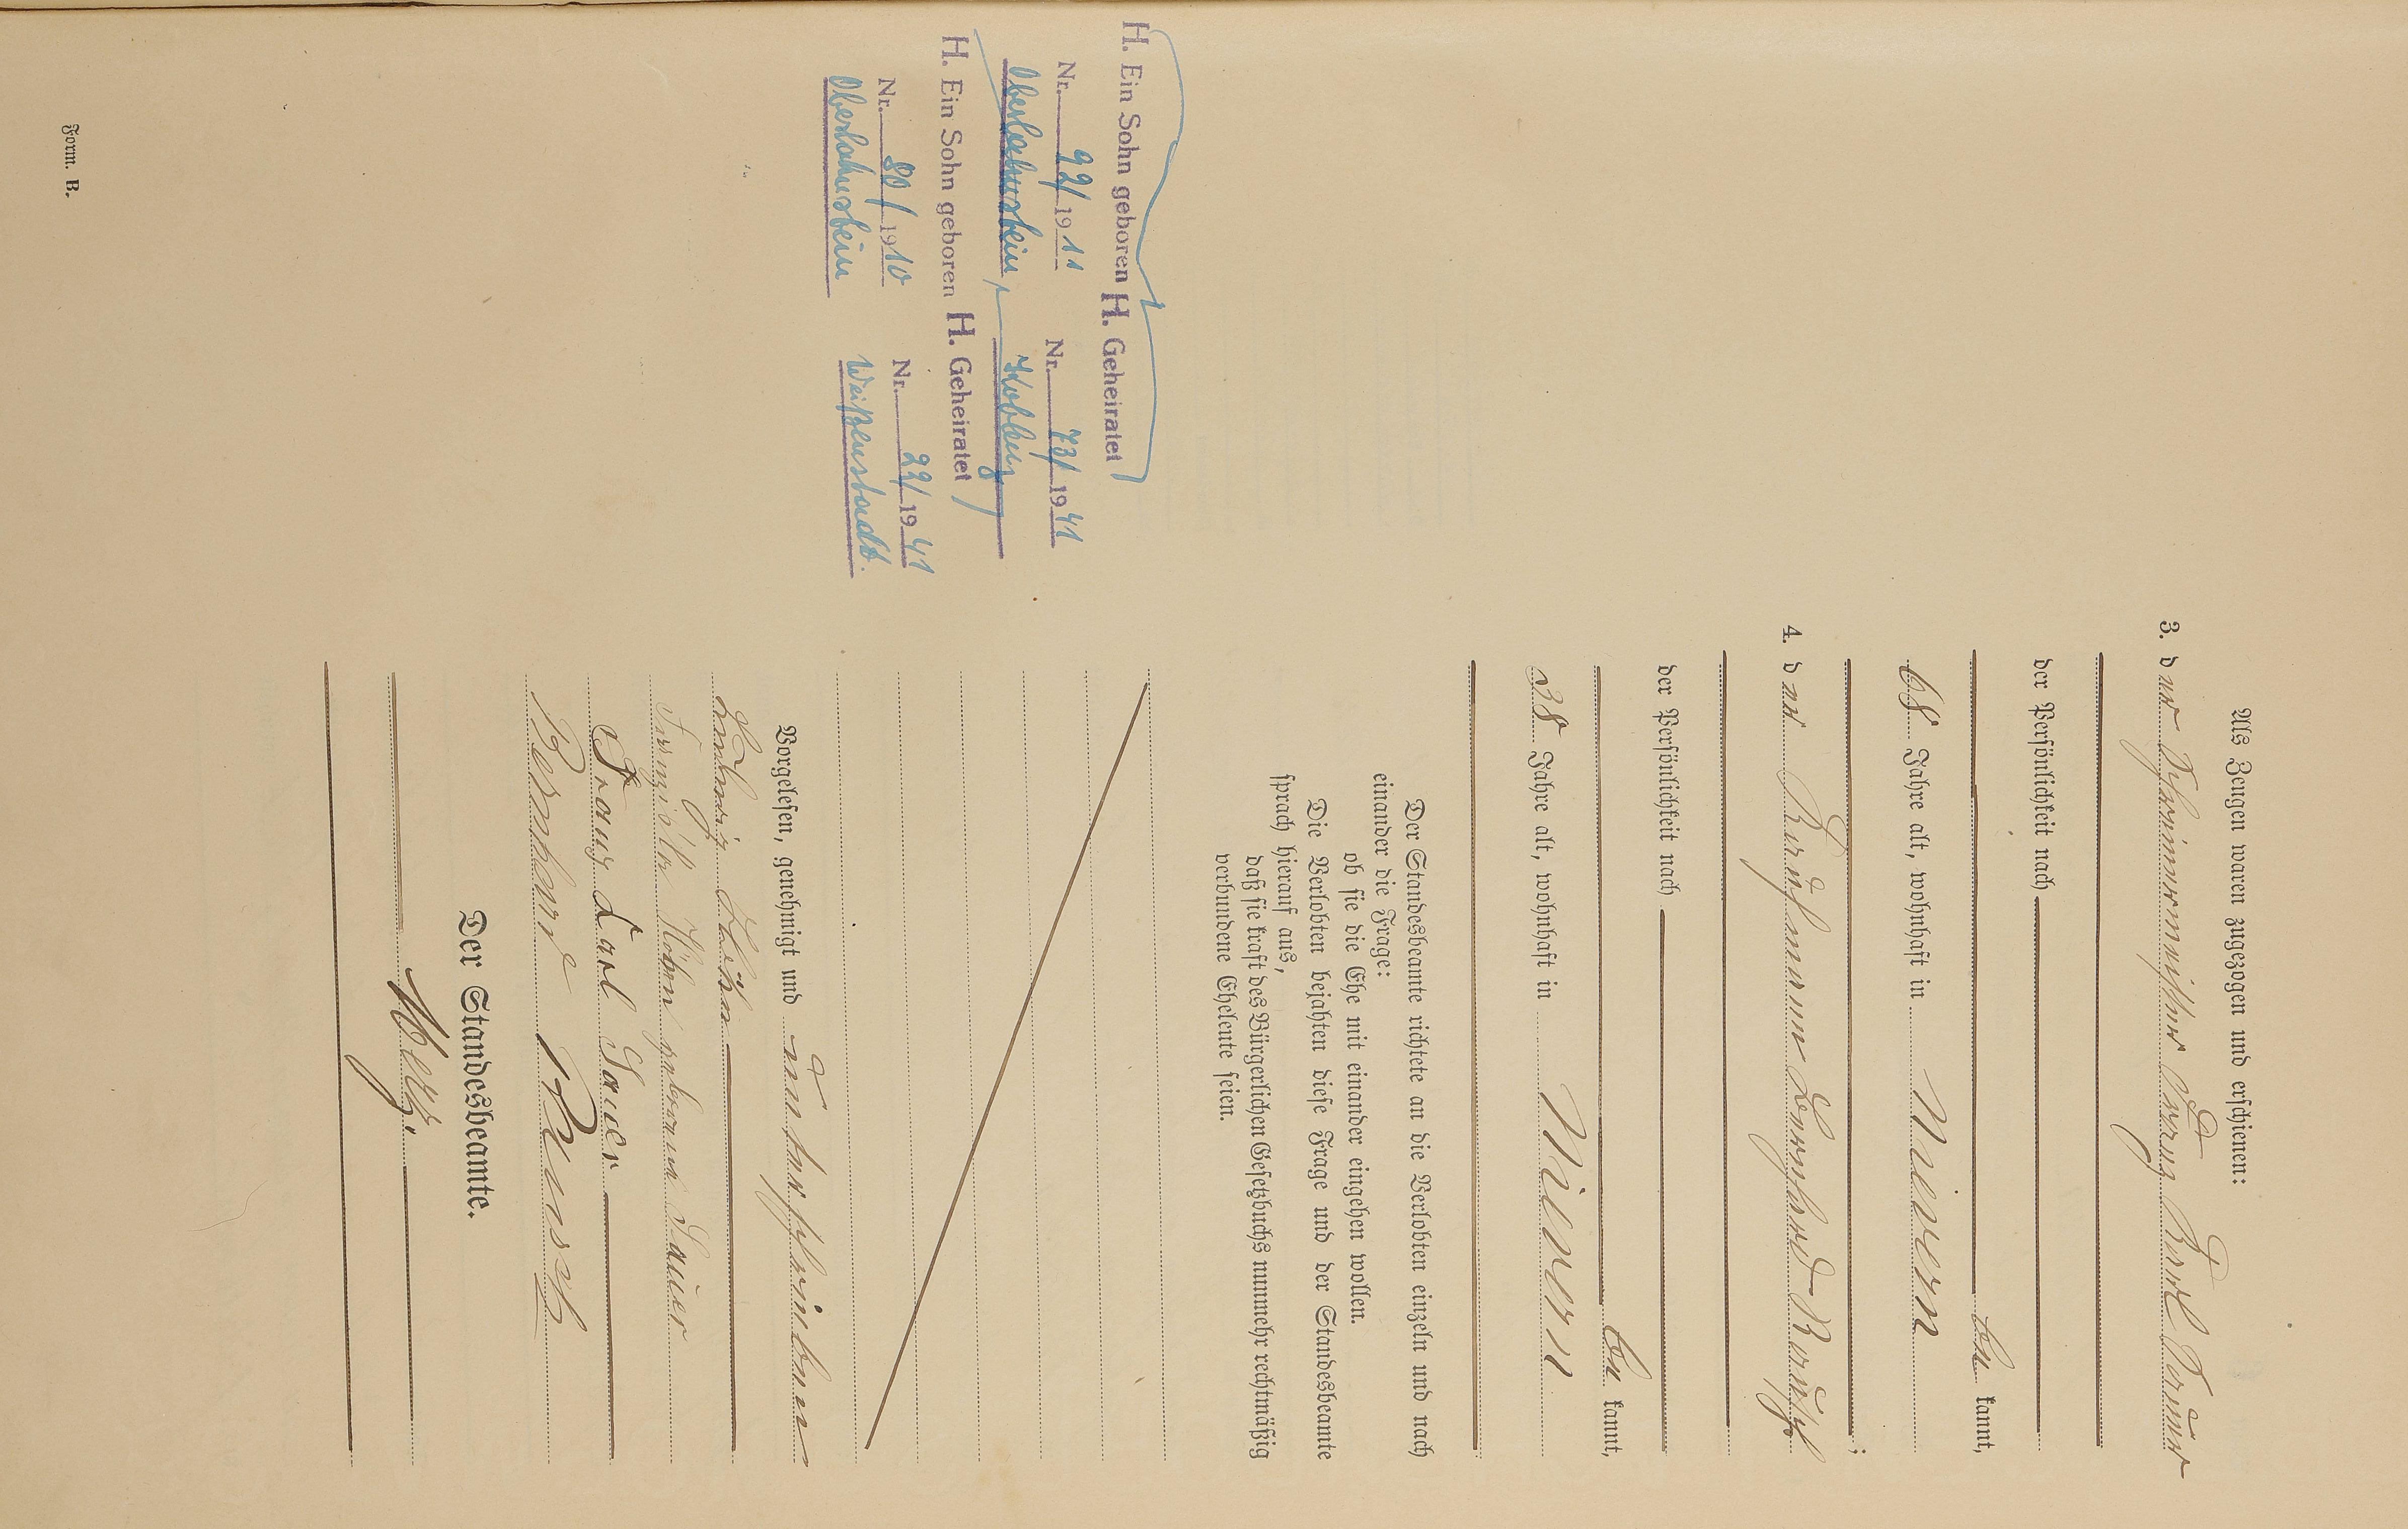 Als Zeugen waren zugezogen und erschienen:
3. der Schreinermeister Franz Karl Sauer
der Persönlichkeit nach
be kannt,
68 Jahre alt, wohnhaft in Nievern
;
4. der Kaufmann Bernhard Rausch
der Persönlichkeit nach
be kannt,
38 Jahre alt, wohnhaft in Nievern
Der Standesbeamte richtete an die Verlobten einzeln und nach
einander die Frage:
ob sie die Ehe mit einander eingehen wollen.
Die Verlobten bejahten diese Frage und der Standesbeamte
sprach hierauf aus,
daß sie kraft des Bürgerlichen Gesetzbuchs nunmehr rechtmäßig
verbundene Eheleute seien.
Vorgelesen, genehmigt und unterschrieben
Ludwig
geborene Sauer
Franz Carl Sauer
Bernhard Rausch
Der Standesbeamte.
H. Ein Sohn geboren
Nr. 92/1911
Oberlahnstein
H. Geheiratet
Nr. 73/1941
Koblenz
H. Ein Sohn geboren
Nr. 80/1910
Oberlahnstein
H. Geheiratet
Nr. 22/1941
Weißenstadt.
Form. B.